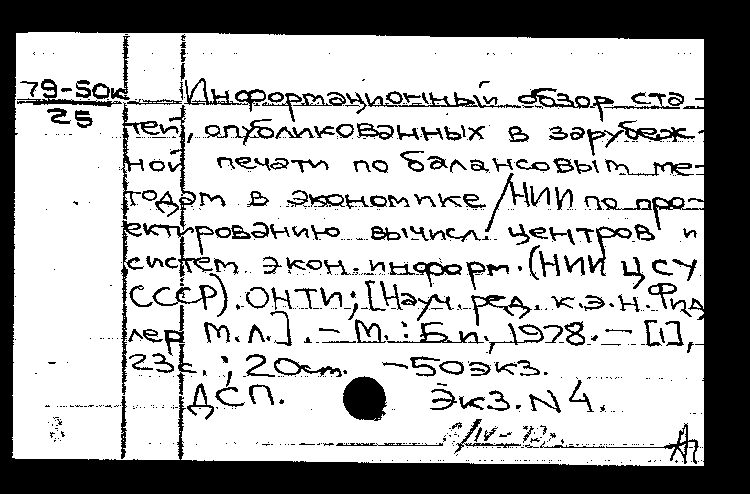 79-50к
25
Информационный обзор ста-
тей, опубликованных в зарубеж-
ной печати по балансовым ме-
тодам в экономике / НИИ по про-
ектированию вычисл. центров и
систем экон. информ. (НИИ ЦСУ
СССР). ОНТИ; [Науч. ред. к.э.н. Фид
лер М.Л.]. - М.: Б.и., 1978. - [1],
23с.; 20см. - 50экз.
ДСП. Экз. N 4.